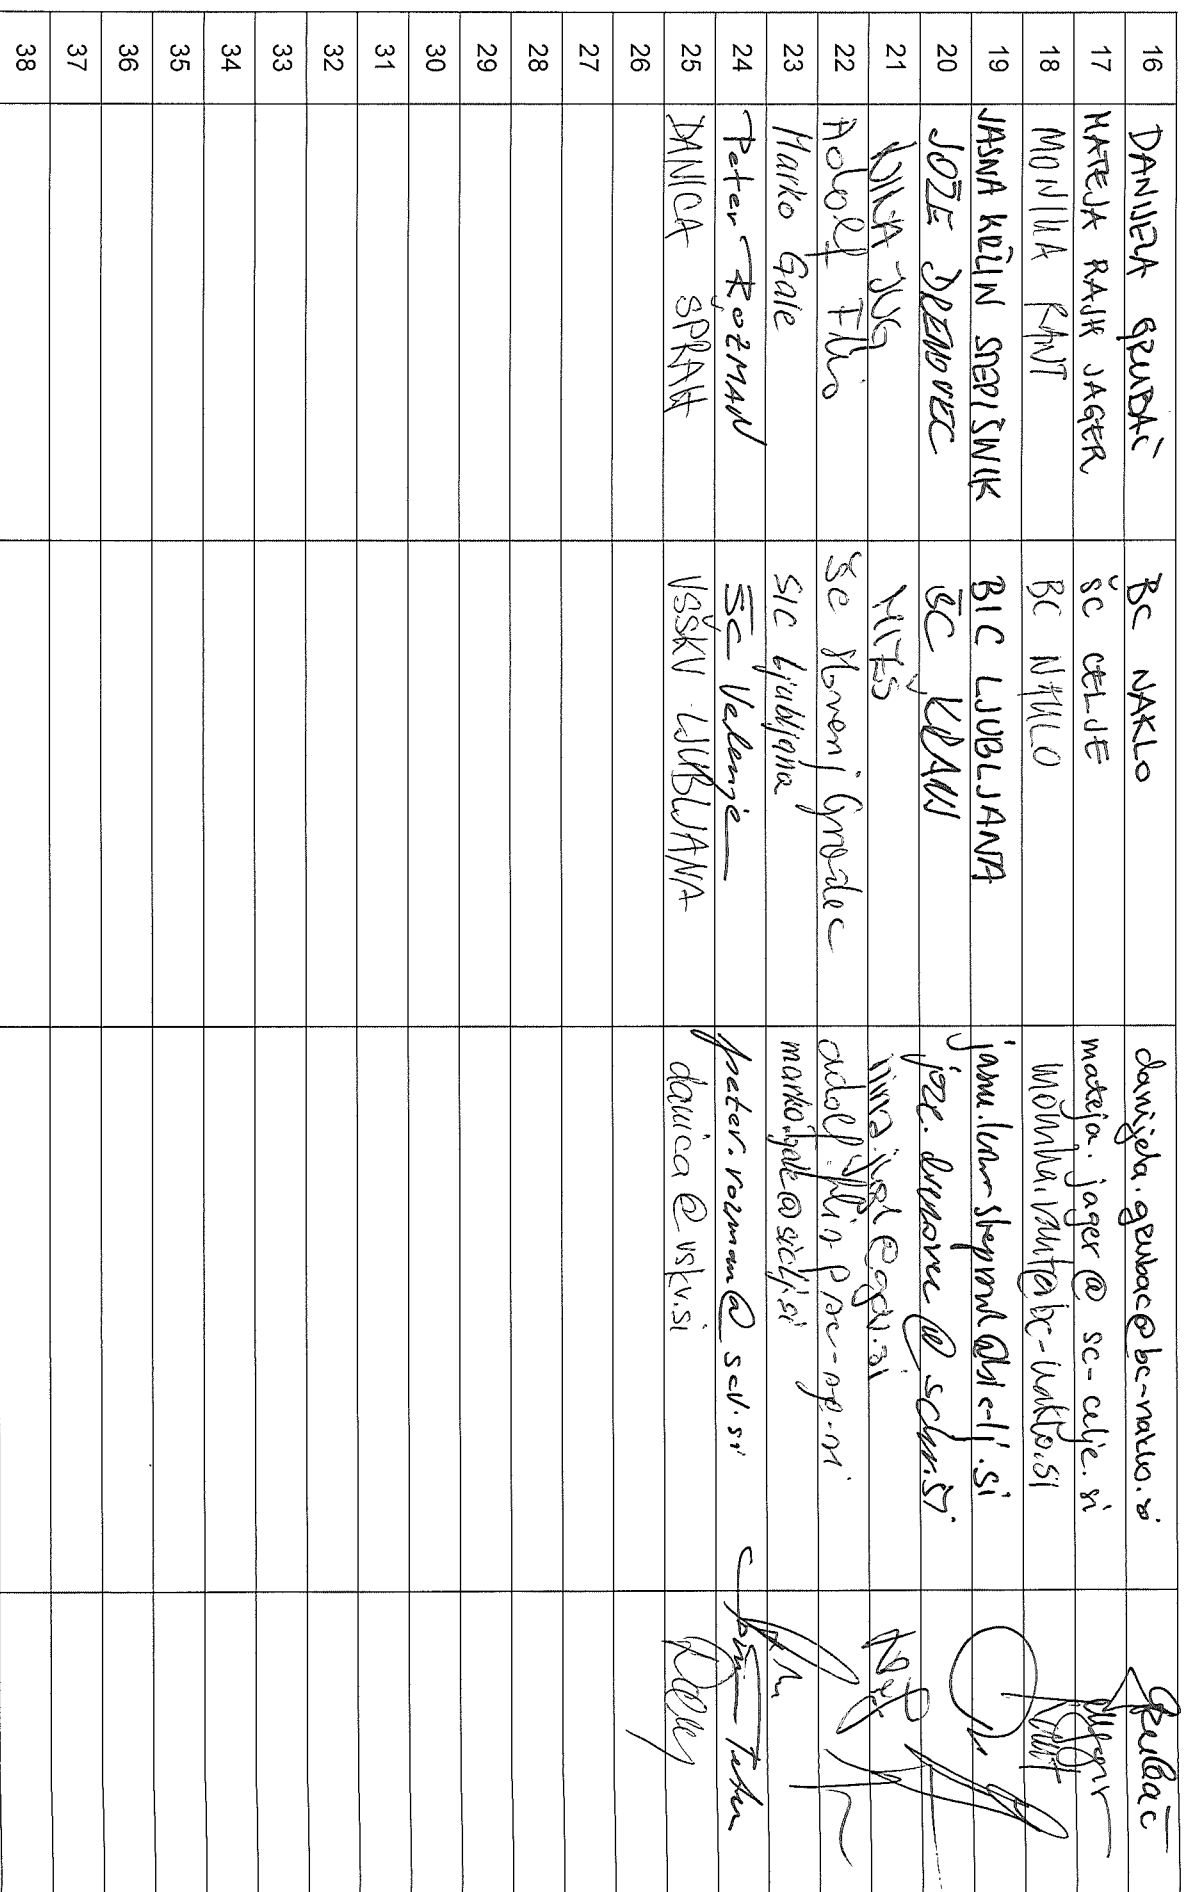 16 DANIJELA GRUBAČ BC NAKLO danijela.grubac@bc-naklo.si Grubač
17 MATEJA RAJH JAGER ŠC CELJE mateja.jager@sc-celje.si
18 MONIKA RANT BC NAKLO monika.rant@bc-naklo.si Rant
19 JASNA KRŽIN STEPIŠNIK BIC LJUBLJANA
20 JOŽE DRENOVEC ŠC KRANJ joze.drenovec@sckr.si
21 NINA JUG MIZŠ
22 Adolf ŠC Slovenj Gradec
23 Marko Gale SIC Ljubljana marko.gale@siclj.si
24 Peter ROZMAN ŠC Velenje peter.rozman@scv.si
25 DANICA SPRAH VSŠKV LJUBLJANA danica@vskv.si
26
27
28
29
30
31
32
33
34
35
36
37
38